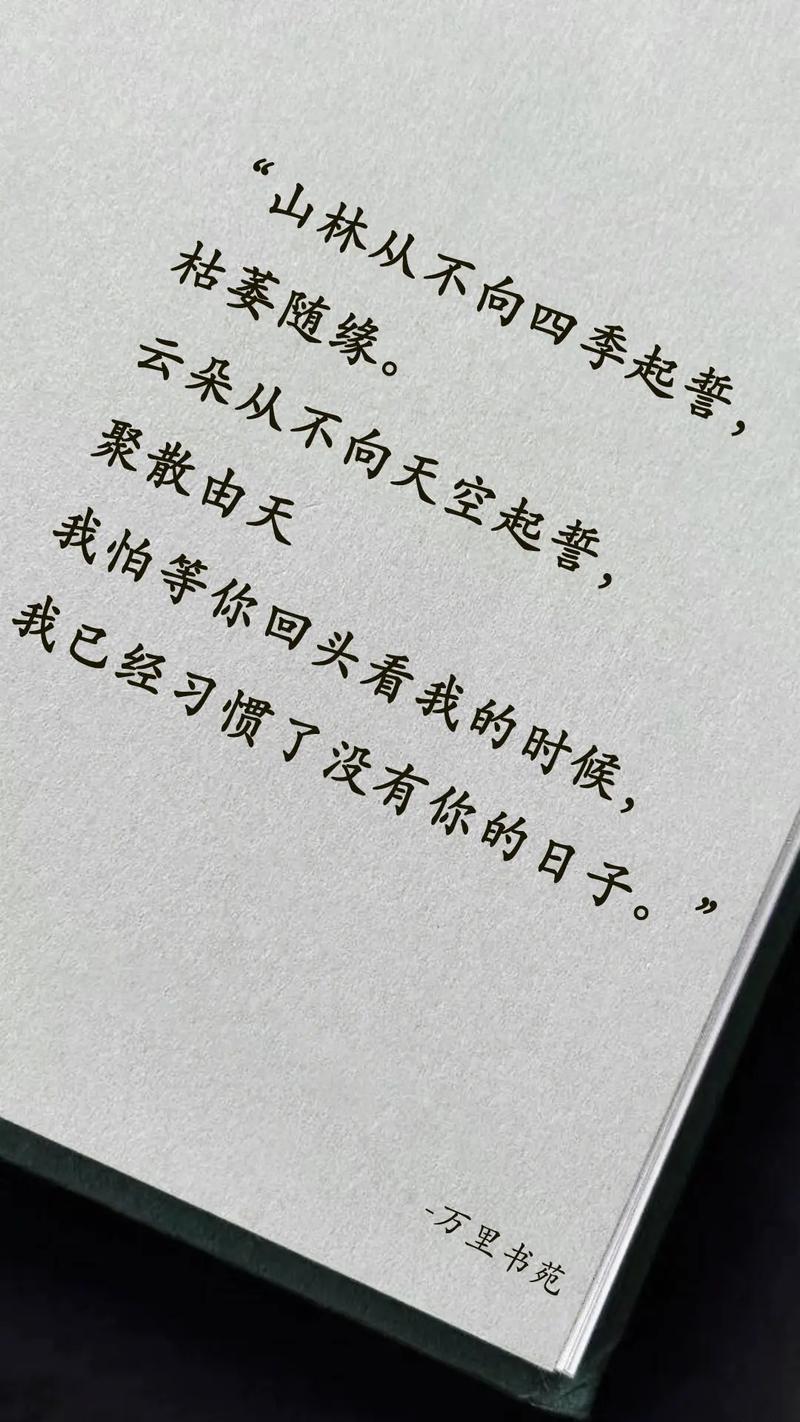 “山林从不向四季起誓，
枯萎随缘。
云朵从不向天空起誓，
聚散由天
我怕等你回头看我的时候，
我已经习惯了没有你的日子。”
-万里书苑